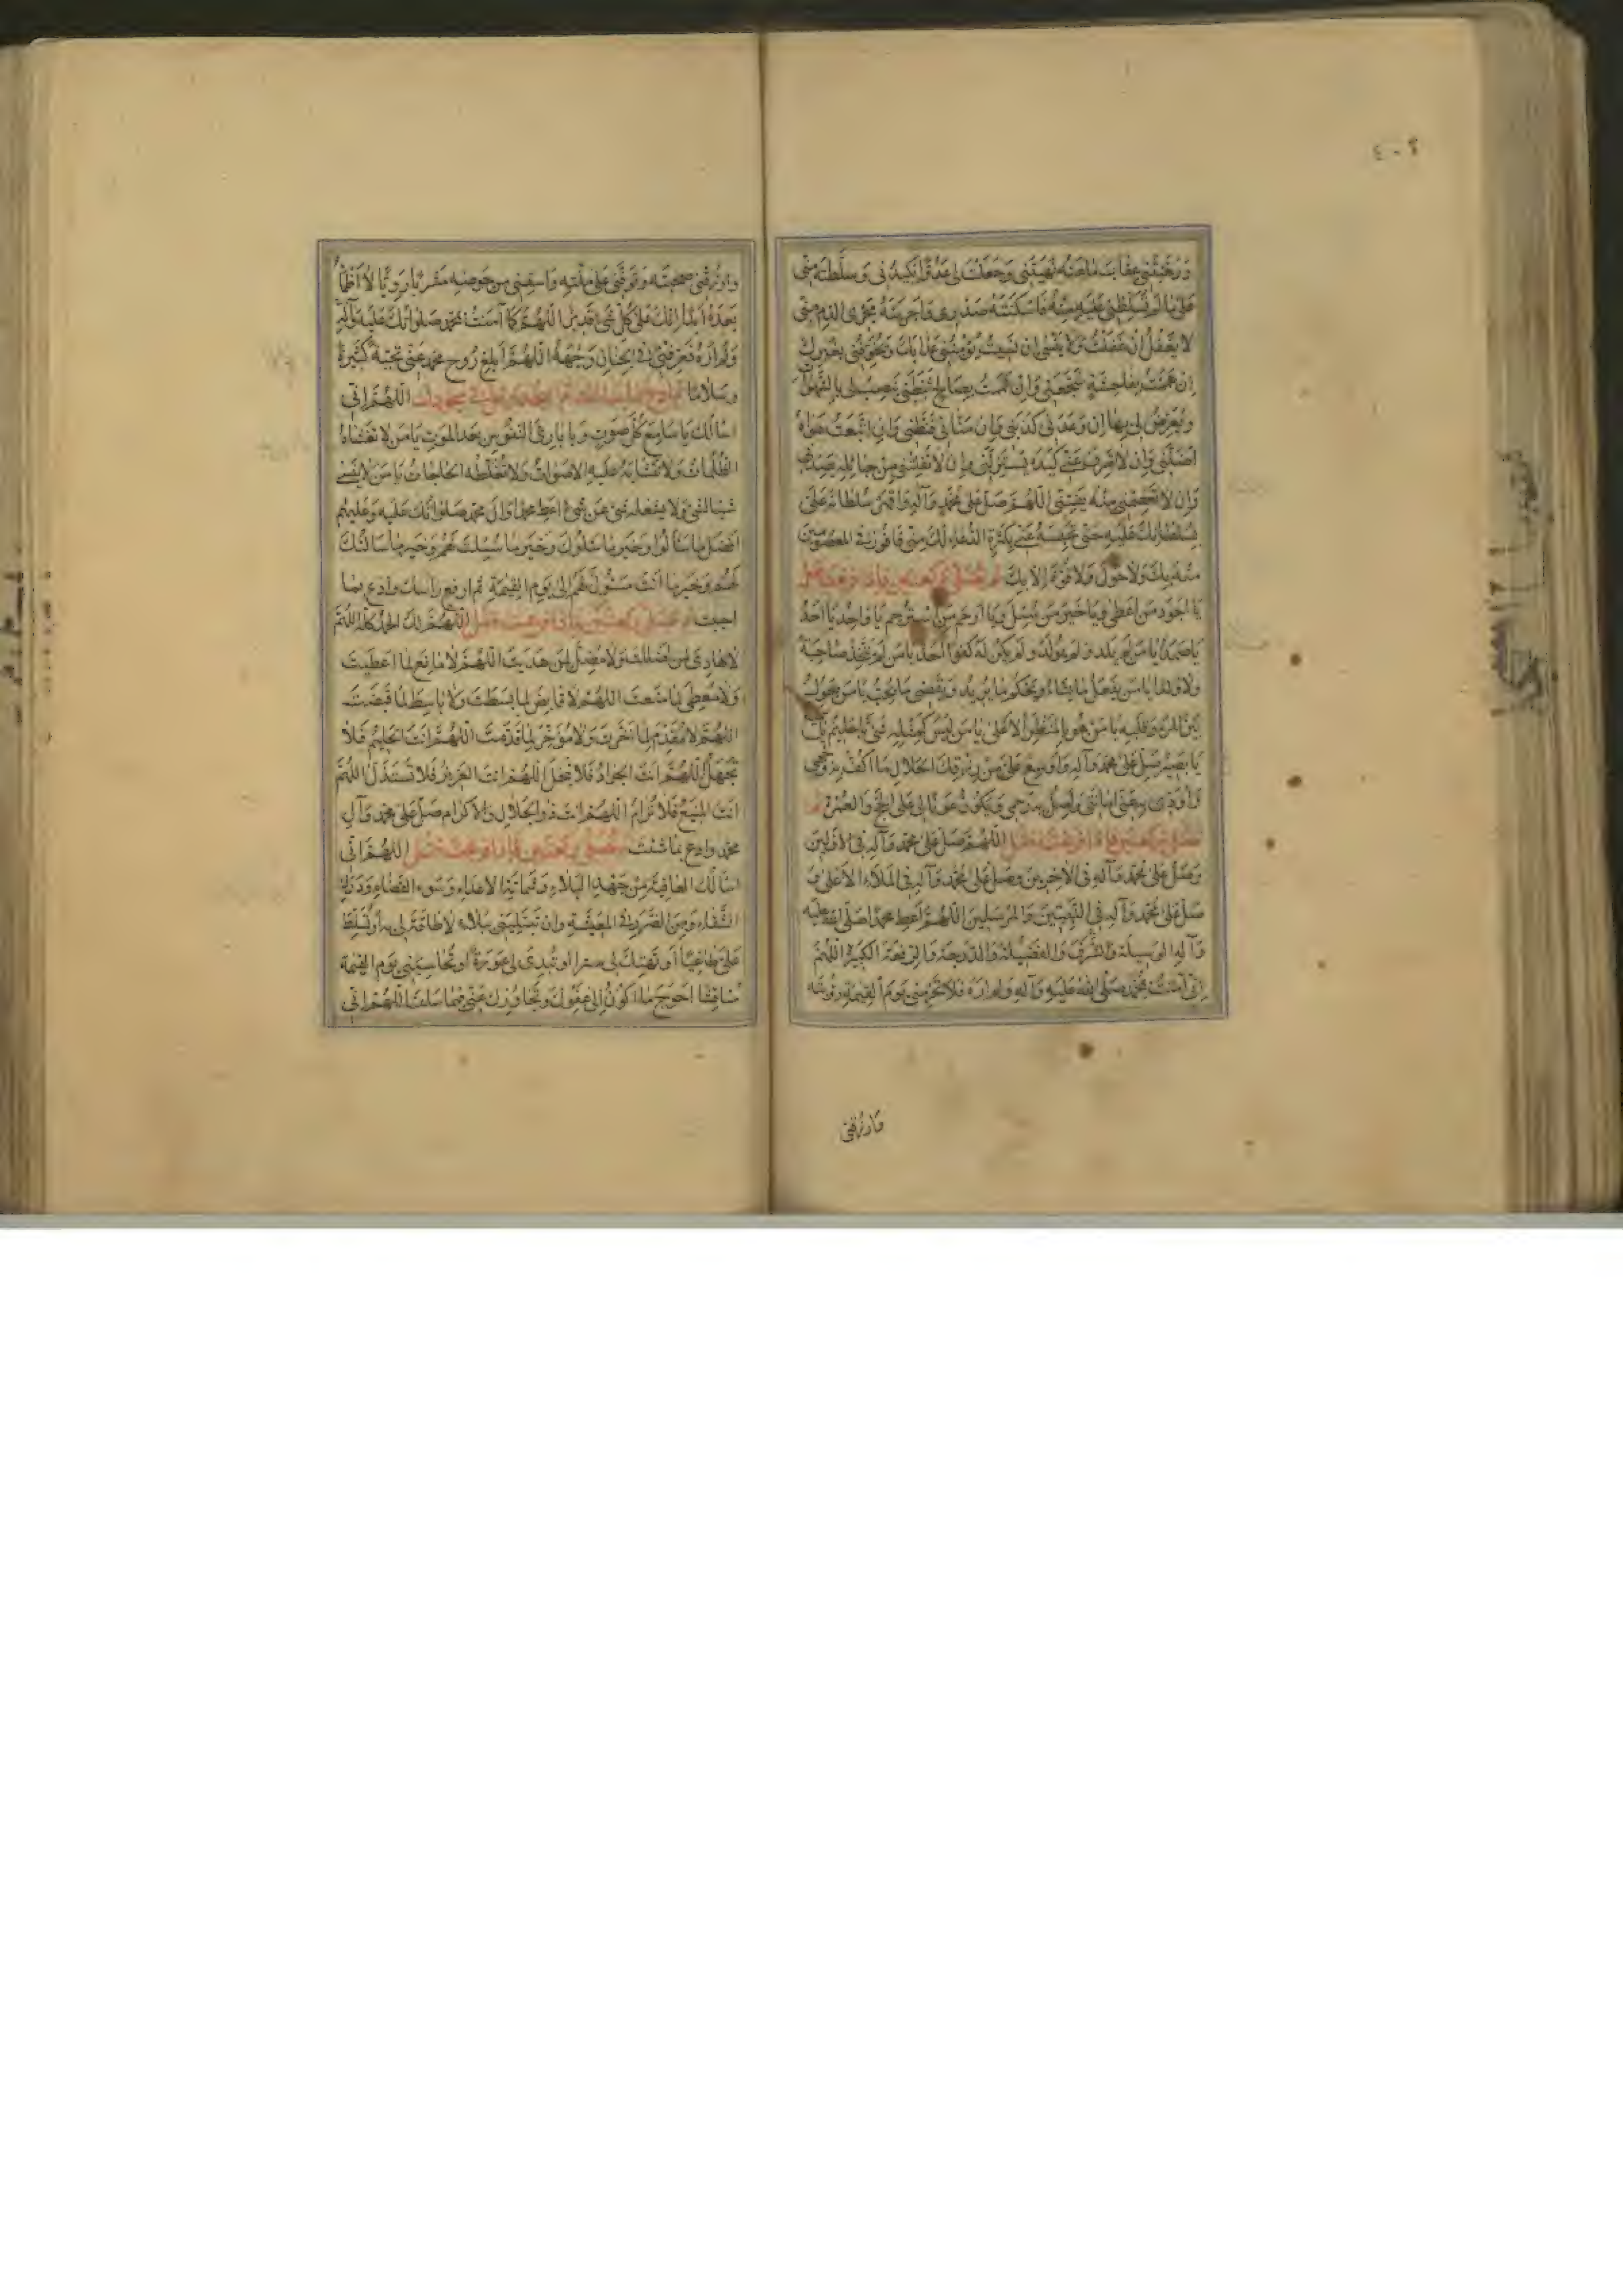 ٤٠٢
وَرَغَّبْتَنِي عِقَابَ مَا عَنْهُ نَهَيْتَنِي وَجَعَلْتَ لِي عَدُوًّا يَكِيدُنِي وَسَلَّطْتَهُ مِنِّي
عَلَى مَا لَمْ تُسَلِّطْنِي عَلَيْهِ مِنْهُ فَأَسْكَنْتَهُ صَدْرِي وَأَجْرَيْتَهُ مَجْرَى الدَّمِ مِنِّي
لَا يَغْفُلُ إِنْ غَفَلْتُ وَلَا يَنْسَى إِنْ نَسِيتُ يُؤْمِنُنِي عَذَابَكَ وَيُخَوِّفُنِي بِغَيْرِكَ
إِنْ هَمَمْتُ بِفَاحِشَةٍ شَجَّعَنِي وَإِنْ هَمَمْتُ بِصَالِحٍ ثَبَّطَنِي يَنْصِبُ لِي بِالشَّهَوَاتِ
وَيَعْرِضُ لِي بِهَا إِنْ وَعَدَنِي كَذَبَنِي وَإِنْ مَنَّانِي قَنَّطَنِي وَإِنِ اتَّبَعْتُ هَوَاهُ
أَضَلَّنِي وَإِنْ لَا تَصْرِفْ عَنِّي كَيْدَهُ يَسْتَزِلَّنِي وَإِنْ لَا تُفْلِتْنِي مِنْ حَبَائِلِهِ يَصُدَّنِي
وَإِنْ لَا تَعْصِمْنِي مِنْهُ يَفْتِنِّي اللّٰهُمَّ صَلِّ عَلَى مُحَمَّدٍ وَآلِهِ وَاقْهَرْ سُلْطَانَهُ عَلَيَّ
بِسُلْطَانِكَ عَلَيْهِ حَتَّى تَحْبِسَهُ عَنِّي بِكَثْرَةِ الدُّعَاءِ لَكَ مِنِّي فَأَفُوزَ فِي الْمَعْصُومِينَ
مِنْهُ بِكَ وَلَا حَوْلَ وَلَا قُوَّةَ إِلَّا بِكَ ثم تصلي ركعتين فإذا فرغت فقل
يَا أَجْوَدَ مَنْ أَعْطَى وَيَا خَيْرَ مَنْ سُئِلَ وَيَا أَرْحَمَ مَنِ اسْتُرْحِمَ يَا وَاحِدُ يَا أَحَدُ
يَا صَمَدُ يَا مَنْ لَمْ يَلِدْ وَلَمْ يُولَدْ وَلَمْ يَكُنْ لَهُ كُفُوًا أَحَدٌ يَا مَنْ لَمْ يَتَّخِذْ صَاحِبَةً
وَلَا وَلَدًا يَا مَنْ يَفْعَلُ مَا يَشَاءُ وَيَحْكُمُ مَا يُرِيدُ وَيَقْضِي مَا يُحِبُّ يَا مَنْ يَحُولُ
بَيْنَ الْمَرْءِ وَقَلْبِهِ يَا مَنْ هُوَ بِالْمَنْظَرِ الْأَعْلَى يَا مَنْ لَيْسَ كَمِثْلِهِ شَيْءٌ يَا حَلِيمُ
يَا بَصِيرُ صَلِّ عَلَى مُحَمَّدٍ وَآلِهِ وَأَوْسِعْ عَلَيَّ مِنْ رِزْقِكَ الْحَلَالِ مَا أَكُفُّ بِهِ وَجْهِي
وَأُؤَدِّي بِهِ عَنِّي أَمَانَتِي وَأَصِلُ بِهِ رَحِمِي وَيَكُونُ عَوْنًا لِي عَلَى الْحَجِّ وَالْعُمْرَةِ ثم
تصلي ركعتين فإذا فرغت فقل اللّٰهُمَّ صَلِّ عَلَى مُحَمَّدٍ وَآلِهِ فِي الْأَوَّلِينَ
وَصَلِّ عَلَى مُحَمَّدٍ وَآلِهِ فِي الْآخِرِينَ وَصَلِّ عَلَى مُحَمَّدٍ وَآلِهِ فِي الْمَلَإِ الْأَعْلَى وَ
صَلِّ عَلَى مُحَمَّدٍ وَآلِهِ فِي النَّبِيِّينَ وَالْمُرْسَلِينَ اللّٰهُمَّ أَعْطِ مُحَمَّدًا صَلَّى اللهُ عَلَيْهِ
وَآلِهِ الْوَسِيلَةَ وَالشَّرَفَ وَالْفَضِيلَةَ وَالدَّرَجَةَ وَالرِّفْعَةَ الْكَبِيرَةَ اللّٰهُمَّ
إِنِّي آمَنْتُ بِمُحَمَّدٍ صَلَّى اللهُ عَلَيْهِ وَآلِهِ وَلَمْ أَرَهُ فَلَا تَحْرِمْنِي يَوْمَ الْقِيٰمَةِ رُؤْيَتَهُ
وَارْزُقْنِي
وَارْزُقْنِي صُحْبَتَهُ وَتَوَفَّنِي عَلَى مِلَّتِهِ وَاسْقِنِي مِنْ حَوْضِهِ مَشْرَبًا رَوِيًّا لَا أَظْمَأُ
بَعْدَهُ أَبَدًا إِنَّكَ عَلَى كُلِّ شَيْءٍ قَدِيرٌ اللّٰهُمَّ كَمَا آمَنْتُ بِمُحَمَّدٍ صَلَوَاتُكَ عَلَيْهِ وَآلِهِ
وَلَمْ أَرَهُ فَعَرِّفْنِي فِي الْجِنَانِ وَجْهَهُ اللّٰهُمَّ أَبْلِغْ رُوحَ مُحَمَّدٍ عَنِّي تَحِيَّةً كَثِيرَةً
وَسَلَامًا ثم ادع بما بدا لك ثم اسجد وقل في سجودك اللّٰهُمَّ إِنِّي
أَسْأَلُكَ يَا سَامِعَ كُلِّ صَوْتٍ وَيَا بَارِئَ النُّفُوسِ بَعْدَ الْمَوْتِ يَا مَنْ لَا تَغْشَاهُ
الظُّلُمَاتُ وَلَا تَتَشَابَهُ عَلَيْهِ الْأَصْوَاتُ وَلَا تُغَلِّطُهُ الْحَاجَاتُ يَا مَنْ لَا يَنْسَى
شَيْئًا لِشَيْءٍ وَلَا يَشْغَلُهُ شَيْءٌ عَنْ شَيْءٍ أَعْطِ مُحَمَّدًا وَآلَ مُحَمَّدٍ صَلَوَاتُكَ عَلَيْهِ وَعَلَيْهِمْ
أَفْضَلَ مَا سَأَلُوا وَخَيْرَ مَا سَأَلُوكَ وَخَيْرَ مَا سُئِلْتَ لَهُمْ وَخَيْرَ مَا سَأَلْتُكَ
لَهُمْ وَخَيْرَ مَا أَنْتَ مَسْئُولٌ لَهُمْ إِلَى يَوْمِ الْقِيٰمَةِ ثم ارفع رأسك وادع بما
أحببت ثم تصلي ركعتين فإذا فرغت فقل اللّٰهُمَّ لَكَ الْحَمْدُ كُلُّهُ اللّٰهُمَّ
لَا هَادِيَ لِمَنْ أَضْلَلْتَ وَلَا مُضِلَّ لِمَنْ هَدَيْتَ اللّٰهُمَّ لَا مَانِعَ لِمَا أَعْطَيْتَ
وَلَا مُعْطِيَ لِمَا مَنَعْتَ اللّٰهُمَّ لَا قَابِضَ لِمَا بَسَطْتَ وَلَا بَاسِطَ لِمَا قَبَضْتَ
اللّٰهُمَّ لَا مُقَدِّمَ لِمَا أَخَّرْتَ وَلَا مُؤَخِّرَ لِمَا قَدَّمْتَ اللّٰهُمَّ أَنْتَ الْحَلِيمُ فَلَا
تَجْهَلُ اللّٰهُمَّ أَنْتَ الْجَوَادُ فَلَا تَبْخَلُ اللّٰهُمَّ أَنْتَ الْعَزِيزُ فَلَا تُسْتَذَلُّ اللّٰهُمَّ
أَنْتَ الْمَنِيعُ فَلَا تُرَامُ اللّٰهُمَّ أَنْتَ ذُو الْجَلَالِ وَالْإِكْرَامِ صَلِّ عَلَى مُحَمَّدٍ وَآلِ
مُحَمَّدٍ وادع بما شئت ثم تصلي ركعتين فإذا فرغت فقل اللّٰهُمَّ إِنِّي
أَسْأَلُكَ الْعَافِيَةَ مِنْ جَهْدِ الْبَلَاءِ وَشَمَاتَةِ الْأَعْدَاءِ وَسُوءِ الْقَضَاءِ وَدَرَكِ
الشَّقَاءِ وَمِنَ الضَّرَرِ فِي الْمَعِيشَةِ وَأَنْ تَبْتَلِيَنِي بِبَلَاءٍ لَا طَاقَةَ لِي بِهِ أَوْ تُسَلِّطَ
عَلَيَّ طَاغِيًا أَوْ تَهْتِكَ لِي سِتْرًا أَوْ تُبْدِيَ لِي عَوْرَةً أَوْ تُحَاسِبَنِي يَوْمَ الْقِيٰمَةِ
مُنَاقِشًا أَحْوَجَ مَا أَكُونُ إِلَى عَفْوِكَ وَتَجَاوُزِكَ عَنِّي فِيمَا سَلَفَ اللّٰهُمَّ إِنِّي